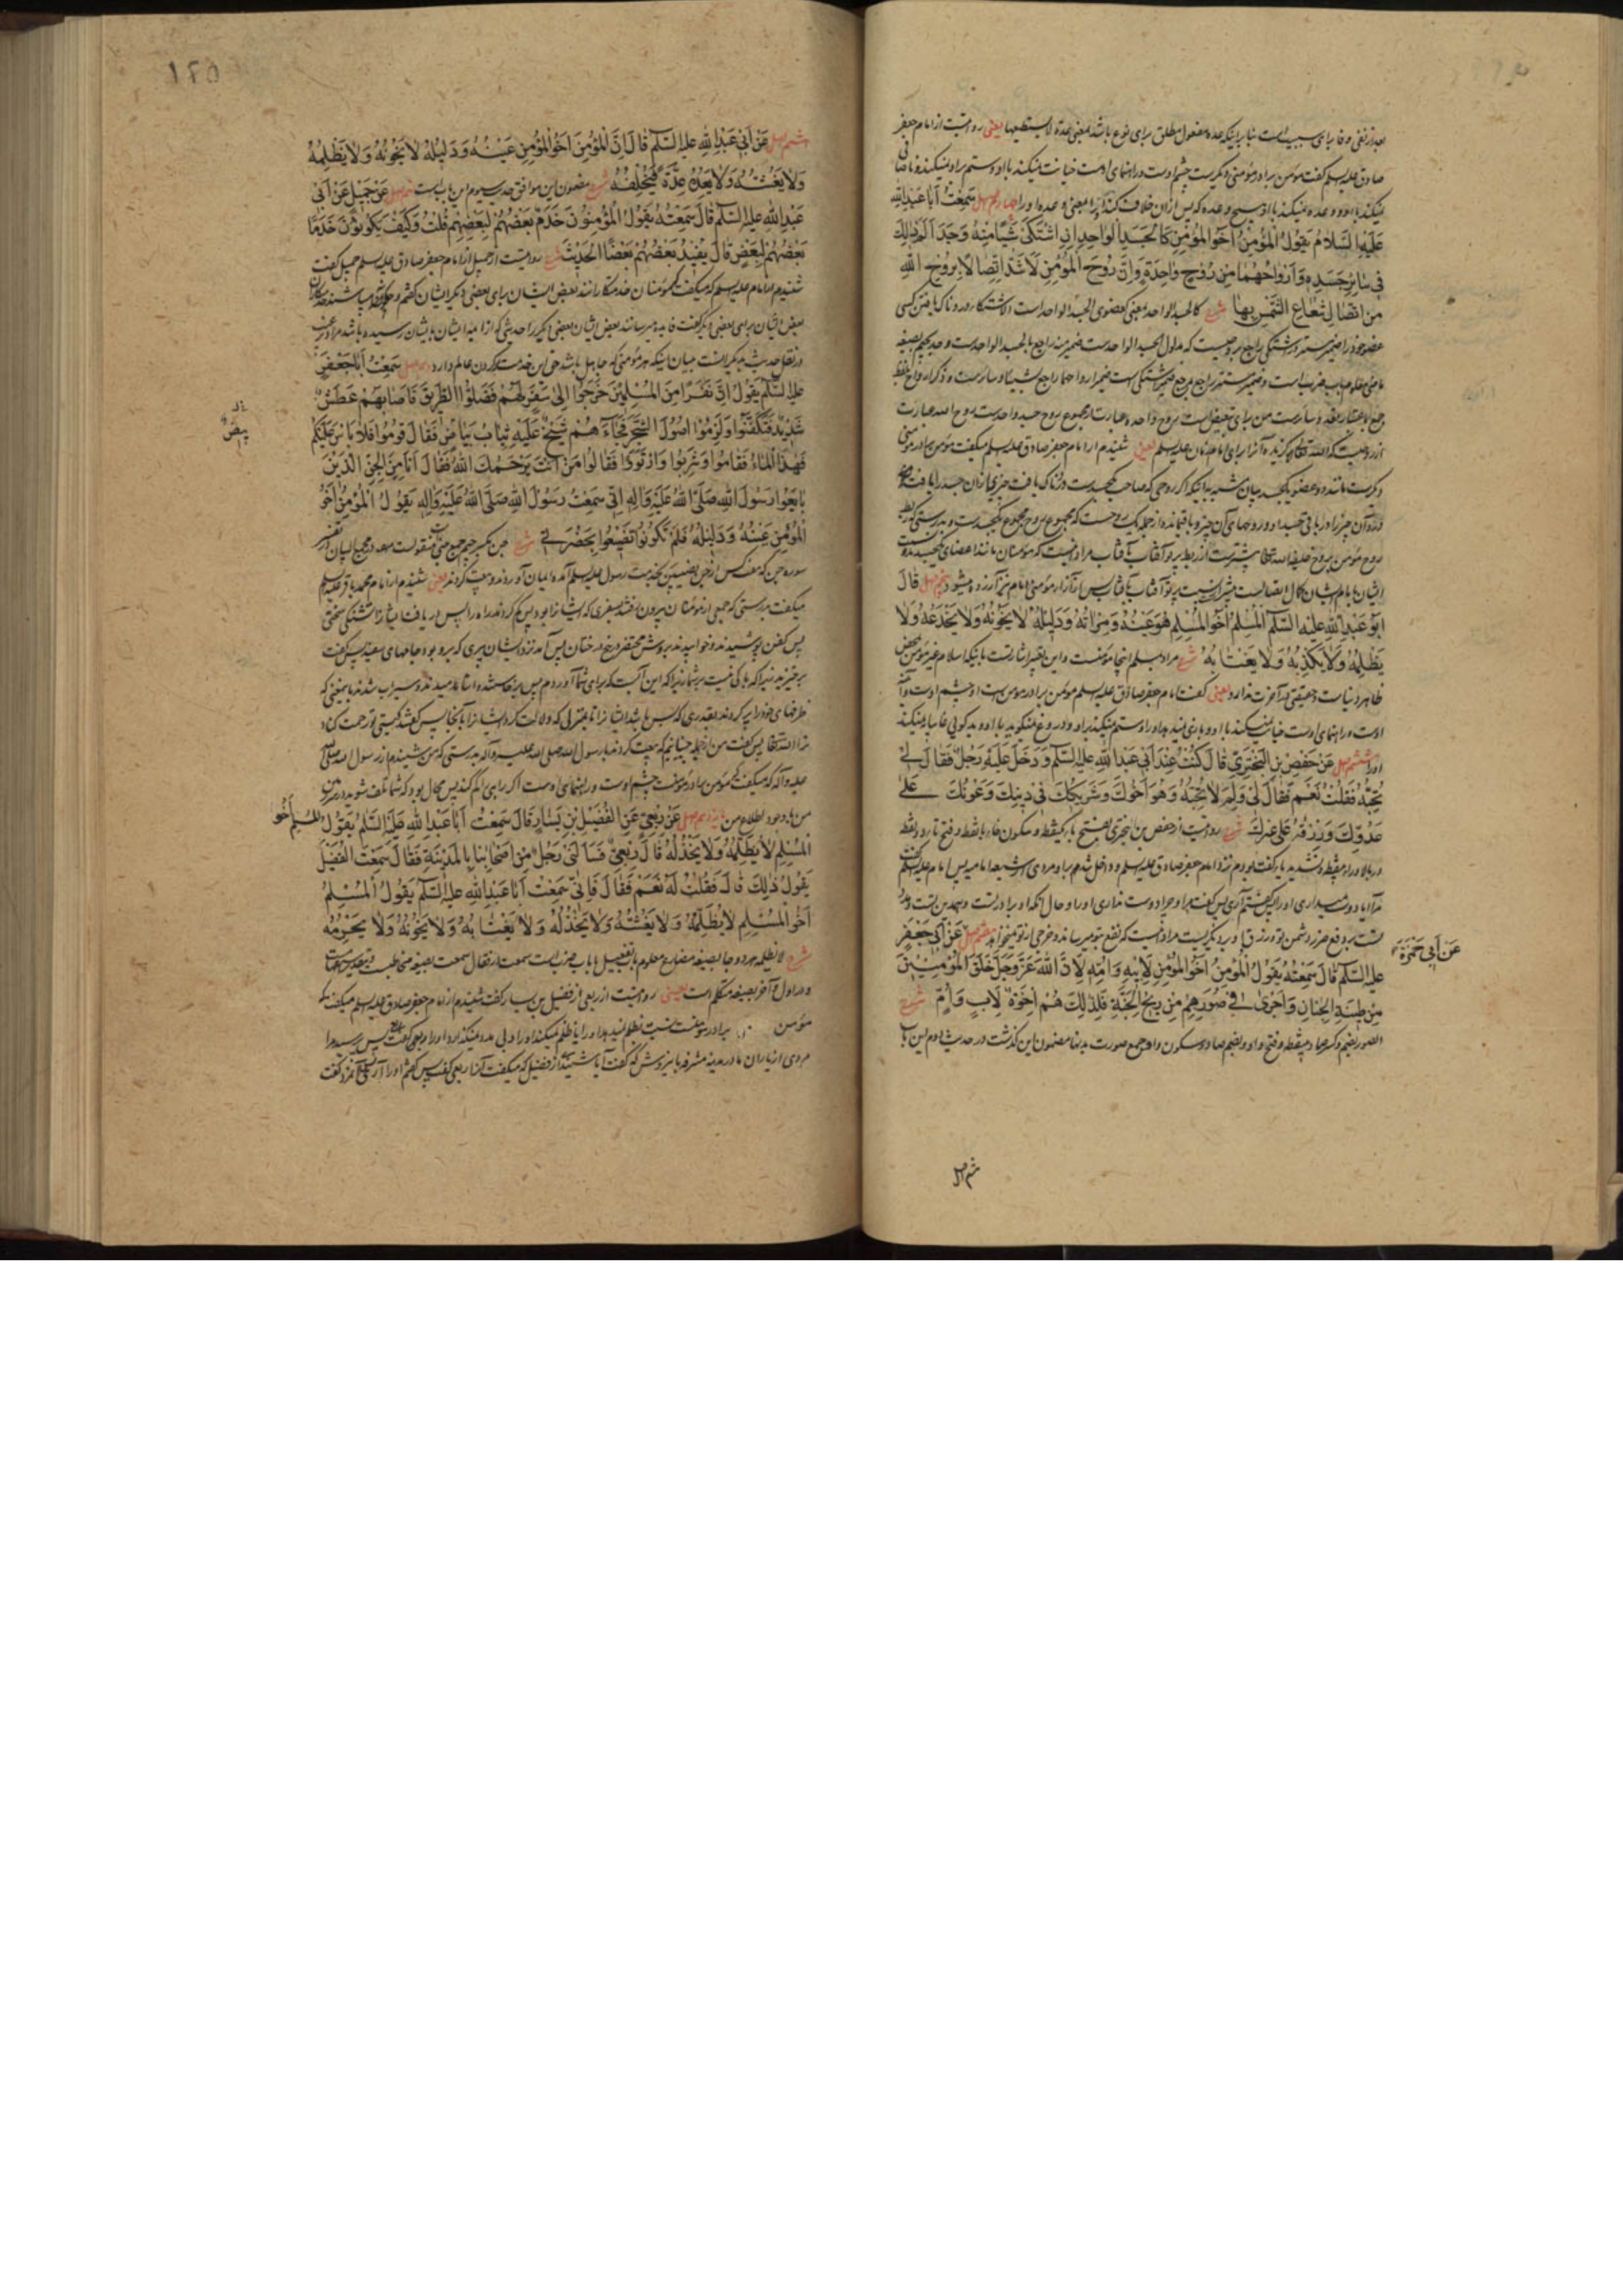 بعد از نفی و فا برای سببیت است بنا بر اینکه عده مفعول مطلق برای نوع باشد بمعنی بعدة لا یستطیعها یعنی روایتست از امام جعفر
صادق علیه السلم گفت مؤمن برادر مؤمنی دیگرست چشم اوست و راهنمای اوست خیانت نمیکند با او و ستم بر او نمیکند و ناصافی
نمیکند با او و وعده نمیکند با او هیچ وعده که پس از ان خلاف کند آنرا یعنی وعده او را چهارم اصل سَمِعْتُ أَبَا عَبْدِ اللّٰهِ
عَلَیْهِ السَّلَامُ یَقُولُ الْمُؤْمِنُ أَخُو الْمُؤْمِنِ كَالْجَسَدِ الْوَاحِدِ إِنِ اشْتَكَى شَیْئًا مِنْهُ وَجَدَ أَلَمَ ذٰلِكَ
فِی سَائِرِ جَسَدِهِ وَأَرْوَاحُهُمَا مِنْ رُوحٍ وَاحِدَةٍ وَإِنَّ رُوحَ الْمُؤْمِنِ لَأَشَدُّ اتِّصَالًا بِرُوحِ اللّٰهِ
مِنِ اتِّصَالِ شُعَاعِ الشَّمْسِ بِهَا شرح كالجسد الواحد بمعنی كعضوی الجسد الواحد است الاشتكا دردناک یافتن کسی
عضو خود را ضمیر مستتر در اشتکی راجع بروحیست که مدلول الجسد الواحدست ضمیر منه راجع بالجسد الواحدست وجد بجیم بصیغه
ماضی معلوم باب ضرب است و ضمیر مستتر راجع بمرجع ضمیر اشتکی است ضمیر ارواحهما راجع بشیئا و سائرست و ذکر ارواح بلفظ
جمع باعتبار تعدد سائرست من برای تبعیض است روح واحده عبارت از مجموع روح جسد واحدست روح الله عبارت
از روحیست که الله تعالی برگزیده آنرا برای امام زمان علیه السلم یعنی شنیدم از امام جعفر صادق علیه السلم میگفت مؤمن برادر مؤمنی
دیگرست مانند دو عضو یکجسد بیان تشبیه باینکه اگر روحی که صاحب یکجسدست دردناک یافت چیزی از ان جسد را یافت
درد آن چیز را در باقی جسد او و روحهای آن چیز و باقیمانده از جمله یک روحست که مجموع روح مجموع یکجسدست و بدرستی که ربط
روح مؤمن بروح خلیفة الله تعالی بیشترست از ربط پرتو آفتاب بآفتاب مراد اینست که مؤمنان مانند اعضای یکجسدند و نسبت
ایشان با امام ایشان کمال اتصالست بیشتر از نسبت پرتو آفتاب بآفتاب پس از آزار مؤمنی امام نیز آزرده میشود پنجم اصل قَالَ
أَبُو عَبْدِ اللّٰهِ عَلَیْهِ السَّلَمُ الْمُسْلِمُ أَخُو الْمُسْلِمِ هُوَ عَیْنُهُ وَمِرْآتُهُ وَدَلِیلُهُ لَا یَخُونُهُ وَلَا یَخْدَعُهُ وَلَا
یَظْلِمُهُ وَلَا یَكْذِبُهُ وَلَا یَغْتَابُهُ شرح مراد بمسلم اینجا مؤمنست و این تعبیر اشارتست باینکه اسلام غیر مؤمن محض
ظاهر دنیاست و حقیقتی در آخرت ندارد یعنی گفت امام جعفر صادق علیه السلم مؤمن برادر مؤمن است او چشم اوست و آینه
اوست و راهنمای اوست خیانت نمیکند با او و بازی نمیدهد او را و ستم نمیکند بر او و دروغ نمیگوید با او و بدگویی غایبانه نمیکند
او را ششم اصل عَنْ حَفْصِ بْنِ الْبَخْتَرِیِّ قَالَ كُنْتُ عِنْدَ أَبِی عَبْدِ اللّٰهِ عَلَیْهِ السَّلَمُ وَدَخَلَ عَلَیْهِ رَجُلٌ فَقَالَ لِی
تُحِبُّهُ فَقُلْتُ نَعَمْ فَقَالَ لِی وَلِمَ لَا تُحِبُّهُ وَهُوَ أَخُوكَ وَشَرِیكُكَ فِی دِینِكَ وَعَوْنُكَ عَلَى
عَدُوِّكَ وَرِزْقُهُ عَلَى غَیْرِكَ شرح روایتست از حفص بن البختری بفتح باء یکنقطه و سکون خاء با نقطه و فتح تاء دو نقطه
در بالا و راء بینقطه و تشدید یاء گفت بودم نزد امام جعفر صادق علیه السلم و داخل شد برو مردی از شیعه امامیه پس امام علیه السلم گفت
مرا آیا دوست میداری او را پس گفتم آری پس گفت مرا و چرا دوست نداری او را و حال آنکه او برادر تست و همدین تست و مدد
تست بر دفع ضرر دشمن تو و رزق او بر دیگریست مراد اینست که نفع بتو میرساند و خرجی از تو نمیخواهد هفتم اصل عَنْ أَبِی جَعْفَرٍ
عن أَبِی حَمْزَةَ
عَلَیْهِ السَّلَمُ قَالَ سَمِعْتُهُ یَقُولُ الْمُؤْمِنُ أَخُو الْمُؤْمِنِ لِأَبِیهِ وَأُمِّهِ لِأَنَّ اللّٰهَ عَزَّ وَجَلَّ خَلَقَ الْمُؤْمِنِینَ
مِنْ طِینَةِ الْجِنَانِ وَأَجْرَى فِی صُوَرِهِمْ مِنْ رِیحِ الْجَنَّةِ فَلِذٰلِكَ هُمْ إِخْوَةٌ لِأَبٍ وَأُمٍّ شرح
الصور بضم و کسر صاد بینقطه و فتح واو و بضم صاد و سکون واو جمع صورت بدنها مضمون این گذشت در حدیث دوم این باب
هشتم اصل
۱۲۵
هشتم اصل عَنْ أَبِی عَبْدِ اللّٰهِ عَلَیْهِ السَّلَمُ قَالَ إِنَّ الْمُؤْمِنَ أَخُو الْمُؤْمِنِ عَیْنُهُ وَدَلِیلُهُ لَا یَخُونُهُ وَلَا یَظْلِمُهُ
وَلَا یَغُشُّهُ وَلَا یَعِدُهُ عِدَةً فَیُخْلِفَهُ شرح مضمون این موافق حدیث سیوم این باب است نهم اصل عَنْ جَمِیلٍ عَنْ أَبِی
عَبْدِ اللّٰهِ عَلَیْهِ السَّلَمُ قَالَ سَمِعْتُهُ یَقُولُ الْمُؤْمِنُونَ خَدَمٌ بَعْضُهُمْ لِبَعْضِهِمْ قُلْتُ وَكَیْفَ یَكُونُونَ خَدَمًا
بَعْضُهُمْ لِبَعْضٍ قَالَ یُفِیدُ بَعْضُهُمْ بَعْضًا الْحَدِیثَ شرح روایتست از جمیل از امام جعفر صادق علیه السلم جمیل گفت
شنیدم از امام علیه السلم که میگفت که مؤمنان خدمتکارانند بعض ایشان برای بعضی دیگر ایشان گفتم و چگونه میباشند خدمتکاران
بعض ایشان برای بعضی دیگر گفت فایده میرسانند بعض ایشان بعضی دیگر را حدیثی که از ائمه ایشان بایشان رسیده باشد مراد
در نقل حدیث بدیگرانست بیان اینکه هر مؤمنی که جاهل باشد حق این خدمت کردن عالم دارد دهم اصل سَمِعْتُ أَبَا جَعْفَرٍ
عَلَیْهِ السَّلَمُ یَقُولُ إِنَّ نَفَرًا مِنَ الْمُسْلِمِینَ خَرَجُوا إِلَى سَفَرٍ لَهُمْ فَضَلُّوا الطَّرِیقَ فَأَصَابَهُمْ عَطَشٌ
شَدِیدٌ فَتَكَفَّنُوا وَلَزِمُوا أُصُولَ الشَّجَرِ فَجَاءَهُمْ شَیْخٌ عَلَیْهِ ثِیَابٌ بَیَاضٌ فَقَالَ قُومُوا فَلَا بَأْسَ عَلَیْكُمْ
بیض
فَهٰذَا الْمَاءُ فَقَامُوا وَشَرِبُوا وَارْتَوَوْا فَقَالُوا مَنْ أَنْتَ یَرْحَمُكَ اللّٰهُ فَقَالَ أَنَا مِنَ الْجِنِّ الَّذِینَ
بَایَعُوا رَسُولَ اللّٰهِ صَلَّى اللّٰهُ عَلَیْهِ وَآلِهِ إِنِّی سَمِعْتُ رَسُولَ اللّٰهِ صَلَّى اللّٰهُ عَلَیْهِ وَآلِهِ یَقُولُ الْمُؤْمِنُ أَخُو
الْمُؤْمِنِ عَیْنُهُ وَدَلِیلُهُ فَلَمْ تَكُونُوا تَضَیَّعُوا بِحَضْرَتِی شرح جن بکسر جیم جمع جنی منقولست در مجمع البیان در تفسیر
سوره جن که هفت کس از جن نصیبین بخدمت رسول علیه السلم آمده ایمان آوردند و بیعت کردند یعنی شنیدم از امام محمد باقر علیه السلم
میگفت بدرستی که جمعی از مؤمنان بیرون رفتند بسفری که ایشانرا بود پس گم کردند راه را پس دریافت ایشانرا تشنگی سختی
پس کفن پوشیدند و خوابیدند بروش محتضر در بیخ درختان پس آمد نزد ایشان پیری که برو بود جامهای سفید پس گفت
برخیزید زیرا که باکی نیست بر شما زیرا که این آبست که برای شما آوردم پس برخاستند و آشامیدند و سیراب شدند بمعنی که
ظرفهای خود را پر کردند بقدری که بس باشد ایشانرا تا منزلی که دلالت کرد ایشانرا بآنجا پس گفتند کیستی تو رحمت کناد
ترا الله تعالی پس گفت من از جمله جنیانیم که بیعت کردند با رسول الله صلی الله علیه و آله بدرستی که من شنیدم از رسول الله صلی الله
علیه و آله که میگفت که مؤمن برادر مؤمنست چشم اوست و راهنمای اوست اگر راهی گم کند پس محال بود که شما تلف شوید در حضور
من با وجود اطلاع من یازدهم اصل عَنْ رِبْعِیٍّ عَنِ الْفُضَیْلِ بْنِ یَسَارٍ قَالَ سَمِعْتُ أَبَا عَبْدِ اللّٰهِ عَلَیْهِ السَّلَمُ یَقُولُ الْمُسْلِمُ أَخُو
الْمُسْلِمِ لَا یَظْلِمُهُ وَلَا یَخْذُلُهُ قَالَ رِبْعِیٌّ فَسَأَلَنِی رَجُلٌ مِنْ أَصْحَابِنَا بِالْمَدِینَةِ فَقَالَ سَمِعْتَ الْفُضَیْلَ
یَقُولُ ذٰلِكَ قَالَ فَقُلْتُ لَهُ نَعَمْ فَقَالَ فَإِنِّی سَمِعْتُ أَبَا عَبْدِ اللّٰهِ عَلَیْهِ السَّلَمُ یَقُولُ الْمُسْلِمُ
أَخُو الْمُسْلِمِ لَا یَظْلِمُهُ وَلَا یَغُشُّهُ وَلَا یَخْذُلُهُ وَلَا یَغْتَابُهُ وَلَا یَخُونُهُ وَلَا یَحْرِمُهُ
شرح لا یظلمه هر دو جا بصیغه مضارع معلوم باب تفعیل یا باب ضرب است سمعت از فقال سمعت بصیغه مخاطب
و در اول و آخر بصیغه متکلم است یعنی روایتست از ربعی از فضیل بن یسار گفت شنیدم از امام جعفر صادق علیه السلم میگفت که
مؤمن برادر مؤمنست نسبت بظلم نمیدهد او را یا ظلم نمیکند او را و بی مدد نمیگذارد او را ربعی گفت پس پرسید مرا
مردی از یاران ما در مدینه مشرفه باین روش که گفت آیا شنیدی از فضیل که میگفت آنرا ربعی گفت پس گفتم او را آری پس آن مرد گفت